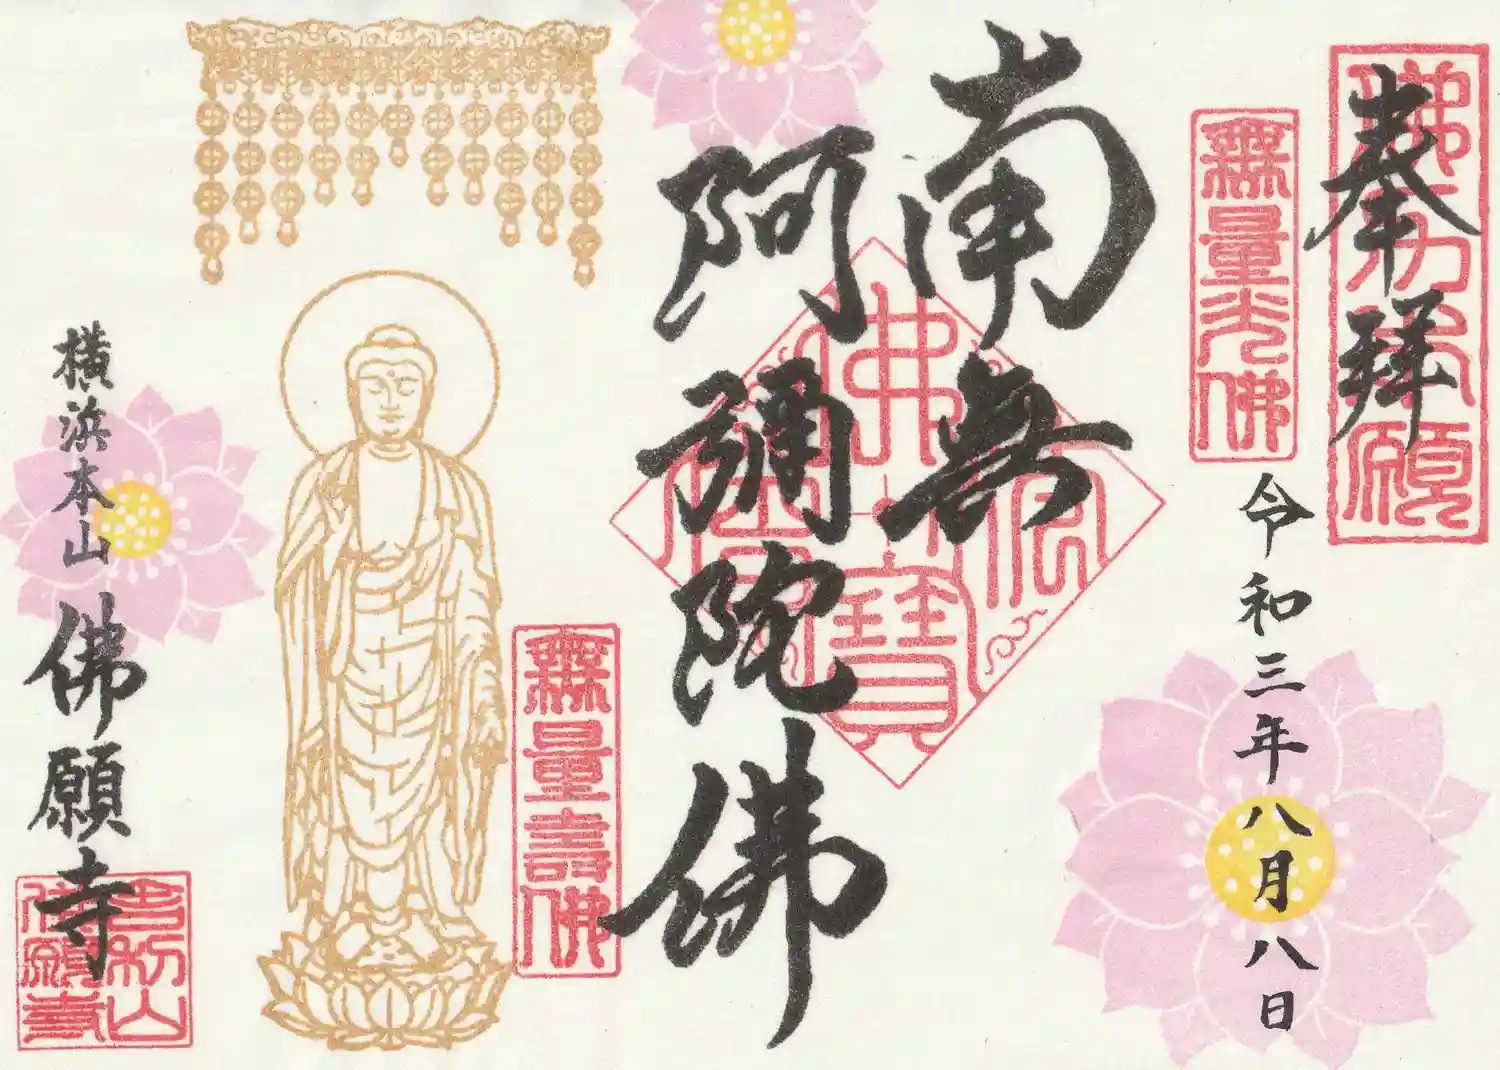 奉拝
無量光佛
令和三年八月八日
南無
阿彌陀佛
佛法僧寶
無量壽佛
横浜本山 佛願寺